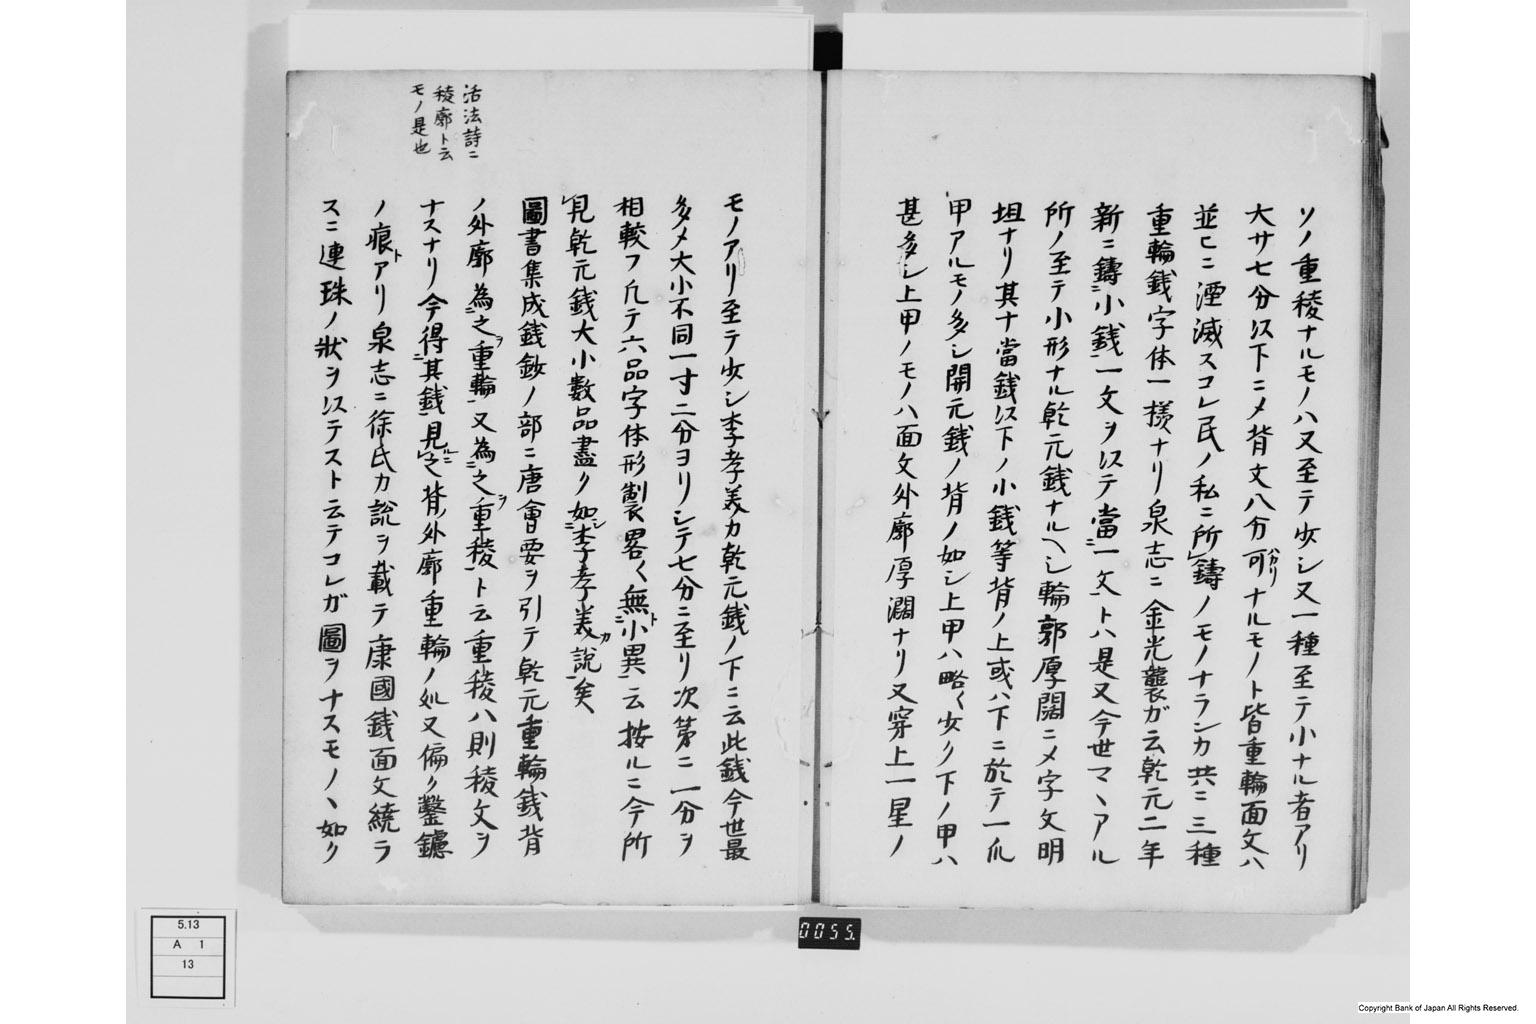 ソノ重稜ナルモノハ又至テ少シ又一種至テ小ナル者アリ
大サ七分以下ニメ背文八分可ハカリナルモノト皆重輪面文ハ
並ヒニ湮滅スコレ民ノ私ニ所鋳ノモノナランカ共ニ三種
重輪銭字体一様ナリ泉志ニ金光襲ガ云乾元二年
新ニ鑄ニ小銭一文ヲ以テ當ニ一文トハ是又今世マヽアル
所ノ至テ小形ナル乾元銭ナルヘシ輪郭厚闊ニメ字文明
坦ナリ其十當銭以下ノ小銭等背ノ上或ハ下ニ於テ一爪
甲アルモノ多シ開元銭ノ背ノ如シ上甲ハ略〱少ク下ノ甲ハ
甚多シ上甲ノモノハ面文外廓厚濶ナリ又穿上一星ノ
モノアリ至テ少シ李孝美カ乾元銭ノ下ニ云此銭今世最
多メ大小不同一寸二分ヨリシテ七分ニ至リ次第ニ一分ヲ
相較フ凡テ六品字体形製畧〱無ニ小異ト云按ルニ今所
見乾元銭大小數品盡ク如ニシ李孝美カ說矣
圖書集成銭鈫ノ部ニ唐會要ヲ引テ乾元重輪銭背
ノ外廓為ニ之ヲ重輪又為ニ之ヲ重稜ト云重稜ハ則稜文ヲ
ナスナリ今得ニ其銭見ルニ之背外廓重輪ノ処又偏ク鑿鑢
ノ痕アリト泉志ニ徐氏カ說ヲ載テ康國銭面文繞ラ
スニ連珠ノ狀ヲ以テスト云テコレガ圖ヲナスモノヽ如ク
活法詩ニ
稜廓ト云
モノ是也
0055.
5.13
A 1
13
Copyright Bank of Japan All Rights Reserved.